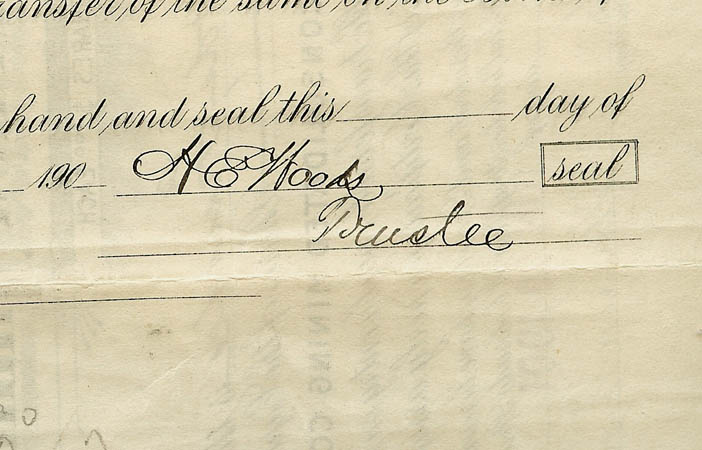 transfer of the same on the
hand and seal this day of
190 H E Woods seal
Trustee